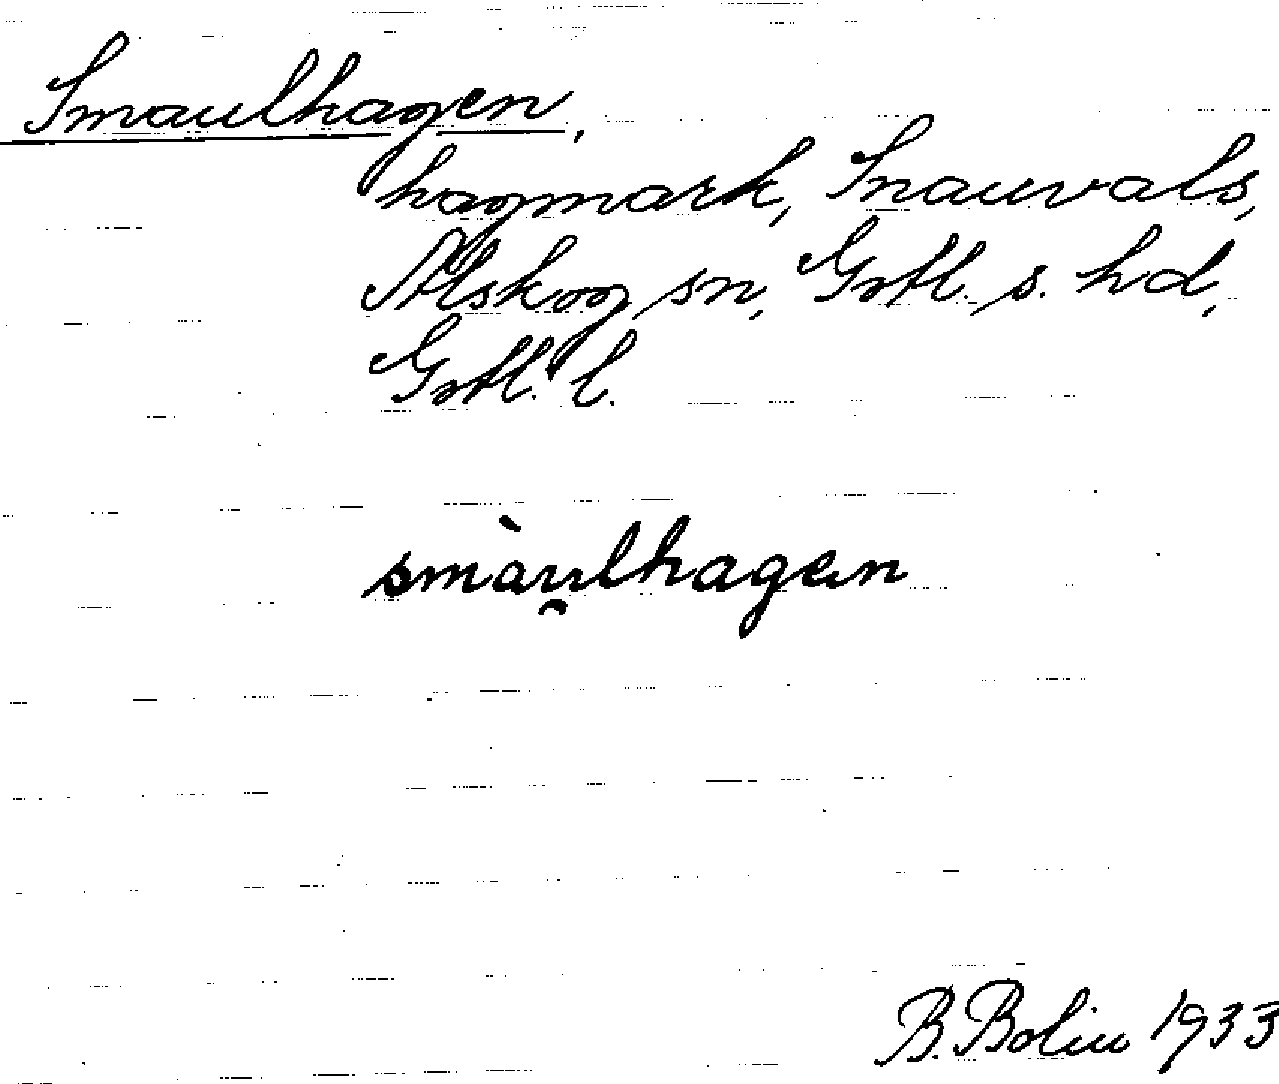 Smaulhagen,
hagmark, Snauvals,
Alskog sn, Gotl. s. hd,
Gotl. l.
smàu̯lhagen
B. Bolin 1933